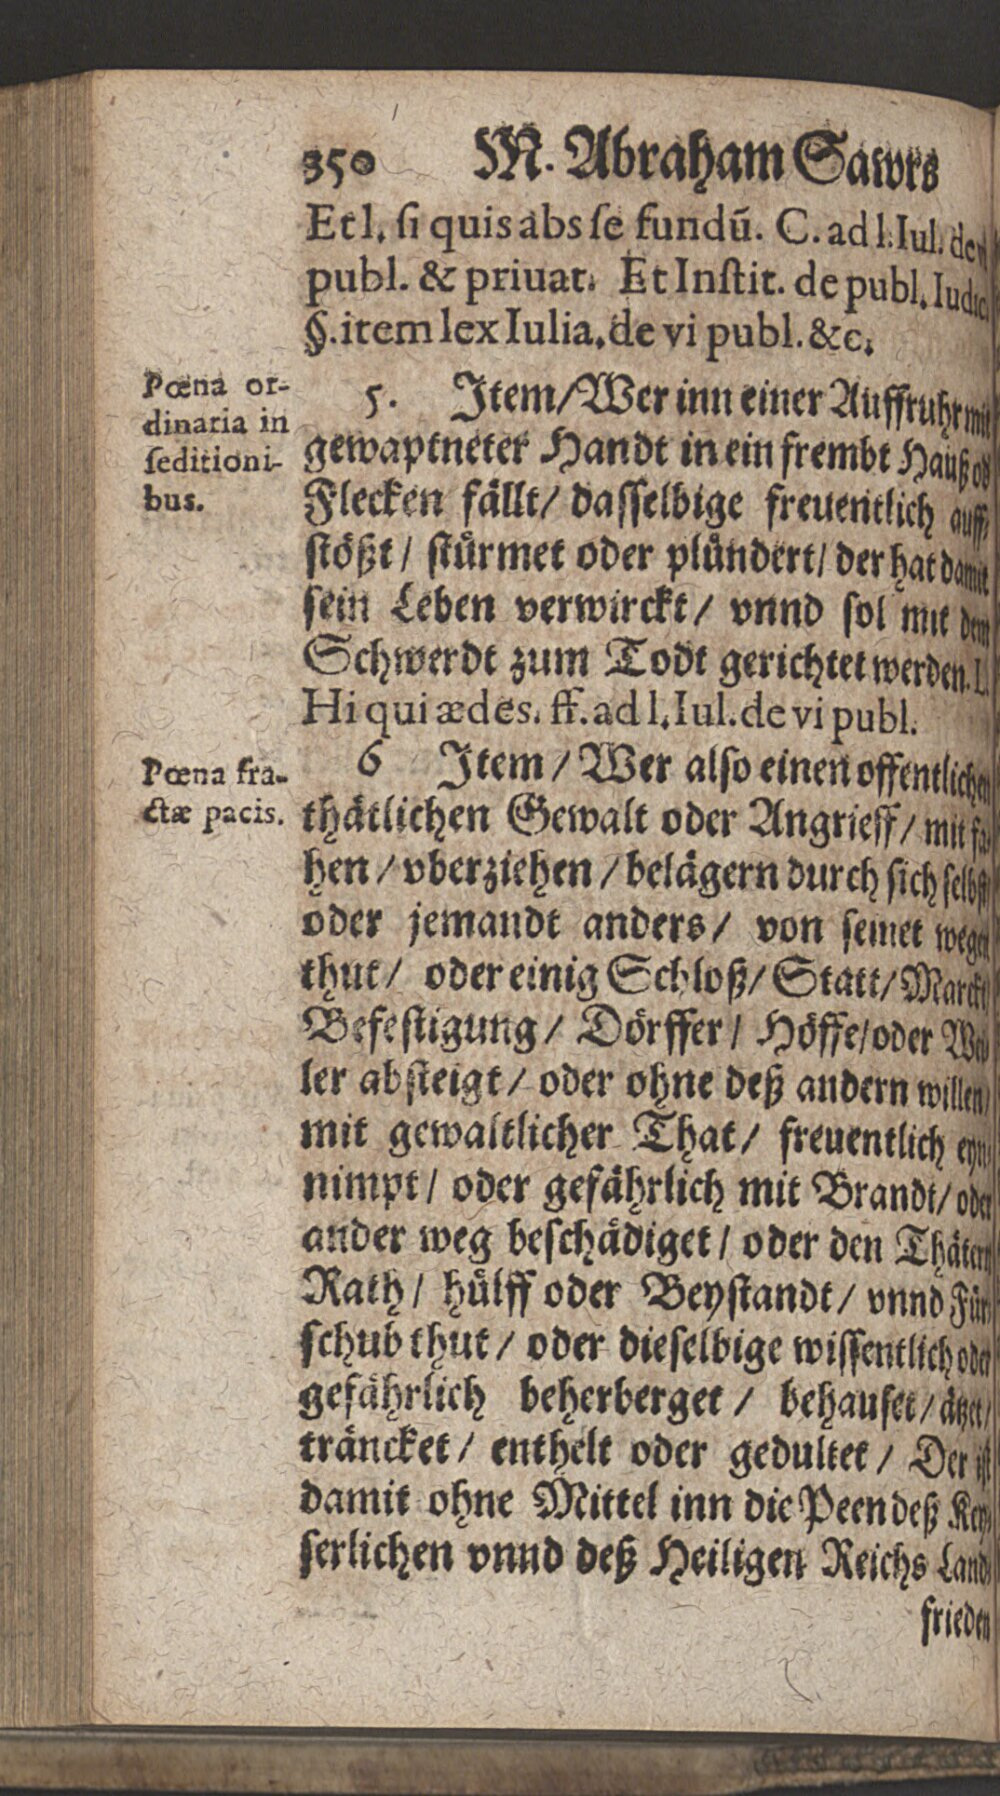 350 M. Abraham Sawrs
Et l. ſi quis abs ſe fundū. C. ad l. Iul. de vi
publ. & priuat. Et Inſtit. de publ. Iudic.
§. item lex Iulia. de vi publ. &c.
Pœna or-
dinaria in
ſeditioni-
bus.
5. Item/ Wer inn einer Auffruhr mit
gewaptneter Handt in ein frembt Hauß od
Flecken fällt/ daſſelbige freuentlich auff
ſtößt/ ſtürmet oder plündert/ der hat damit
ſein Leben verwirckt/ vnnd ſol mit dem
Schwerdt zum Todt gerichtet werden. L.
Hi qui ædes. ff. ad l. Iul. de vi publ.
Pœna fra-
ctæ pacis.
6 Item/ Wer alſo einen offentlichen
thätlichen Gewalt oder Angrieff/ mit fa-
hen/ vberziehen/ belägern durch ſich ſelbſt/
oder jemandt anders/ von ſeinet wegen
thut/ oder einig Schloß/ Statt/ Marckt/
Befeſtigung/ Dörffer/ Höffe/ oder Wei
ler abſteigt/ oder ohne deß andern willen/
mit gewaltlicher That/ freuentlich eyn-
nimpt/ oder gefährlich mit Brandt/ oder
ander weg beſchädiget/ oder den Thätern
Rath/ hülff oder Beyſtandt/ vnnd Für
ſchub thut/ oder dieſelbige wiſſentlich oder
gefährlich beherberget/ behauſet/ ätzet/
träncket/ enthelt oder gedultet/ Der iſt
damit ohne Mittel inn die Peen deß Key-
ſerlichen vnnd deß Heiligen Reichs Land-
frieden